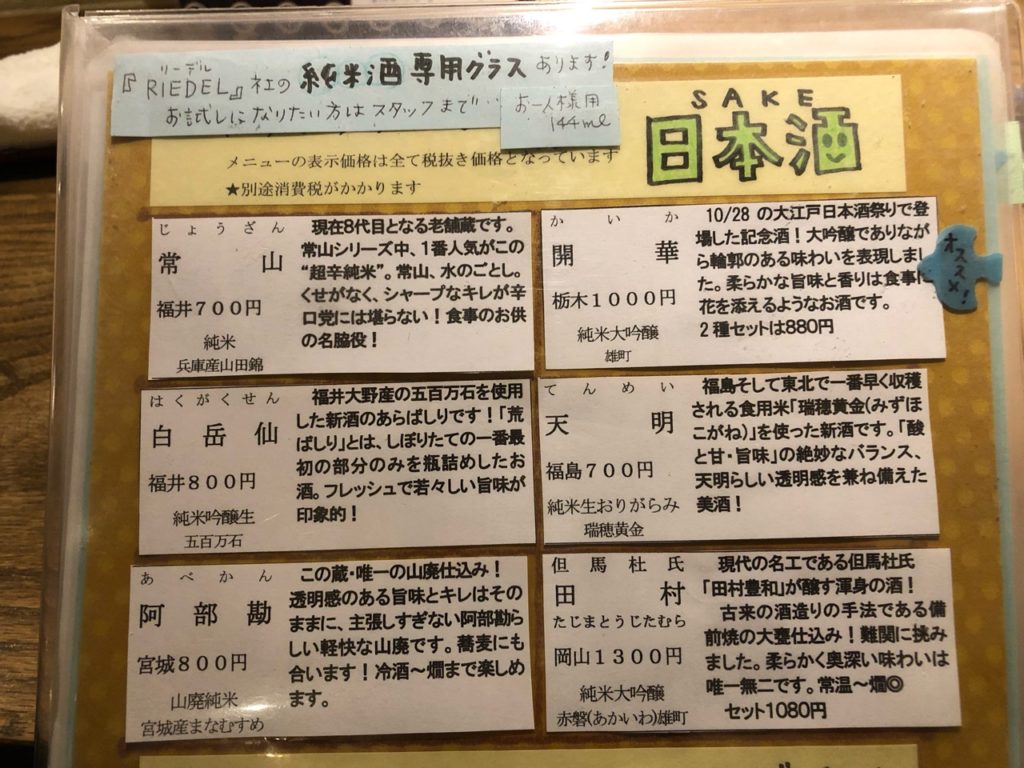 リーデル
『RIEDEL』社の純米酒専用グラスあります!
お試しになりたい方はスタッフまで…
お一人様用
144ml
SAKE
日本酒
メニューの表示価格は全て税抜き価格となっています
★別途消費税がかかります
じょうざん
常山
福井700円
純米
兵庫産山田錦
現在8代目となる老舗蔵です。
常山シリーズ中、1番人気がこの
“超辛純米”。常山、水のごとし。
くせがなく、シャープなキレが辛
口党には堪らない!食事のお供
の名脇役!
かいか
開華
栃木1000円
純米大吟醸
雄町
10/28 の大江戸日本酒祭りで登
場した記念酒!大吟醸でありなが
ら輪郭のある味わいを表現しまし
た。柔らかな旨味と香りは食事に
花を添えるようなお酒です。
2種セットは880円
オススメ!
はくがくせん
白岳仙
福井800円
純米吟醸生
五百万石
福井大野産の五百万石を使用
した新酒のあらばしりです!「荒
ばしり」とは、しぼりたての一番最
初の部分のみを瓶詰めしたお
酒。フレッシュで若々しい旨味が
印象的!
てんめい
天明
福島700円
純米生おりがらみ
瑞穂黄金
福島そして東北で一番早く収穫
される食用米「瑞穂黄金(みずほ
こがね)」を使った新酒です。「酸
と甘・旨味」の絶妙なバランス、
天明らしい透明感を兼ね備えた
美酒!
あべかん
阿部勘
宮城800円
山廃純米
宮城産まなむすめ
この蔵・唯一の山廃仕込み!
透明感のある旨味とキレはその
ままに、主張しすぎない阿部勘ら
しい軽快な山廃です。蕎麦にも
合います!冷酒～燗まで楽しめ
ます。
但馬杜氏
田村
たじまとうじたむら
岡山1300円
純米大吟醸
赤磐(あかいわ)雄町
現代の名工である但馬杜氏
「田村豊和」が醸す渾身の酒!
古来の酒造りの手法である備
前焼の大甕仕込み!難関に挑み
ました。柔らかく奥深い味わいは
唯一無二です。常温～燗◎
セット1080円